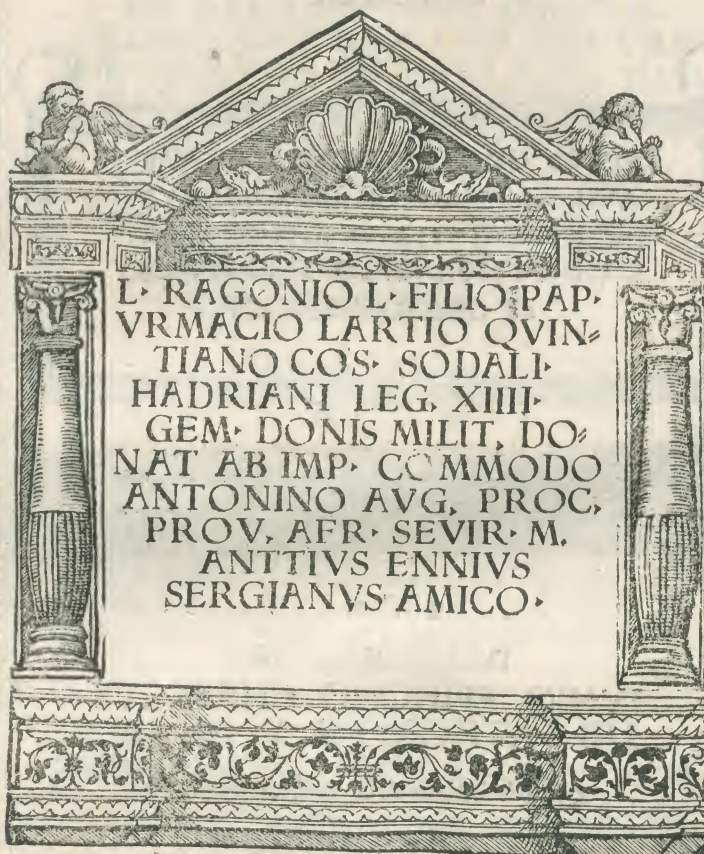 L· RAGONIO L· FILIO PAP·
VRMACIO LARTIO QVIN⸗
TIANO COS· SODALI·
HADRIANI LEG, XIIII·
GEM· DONIS MILIT, DO⸗
NAT AB IMP· COMMODO
ANTONINO AVG, PROC,
PROV, AFR· SEVIR· M,
ANTTIVS ENNIVS
SERGIANVS AMICO·